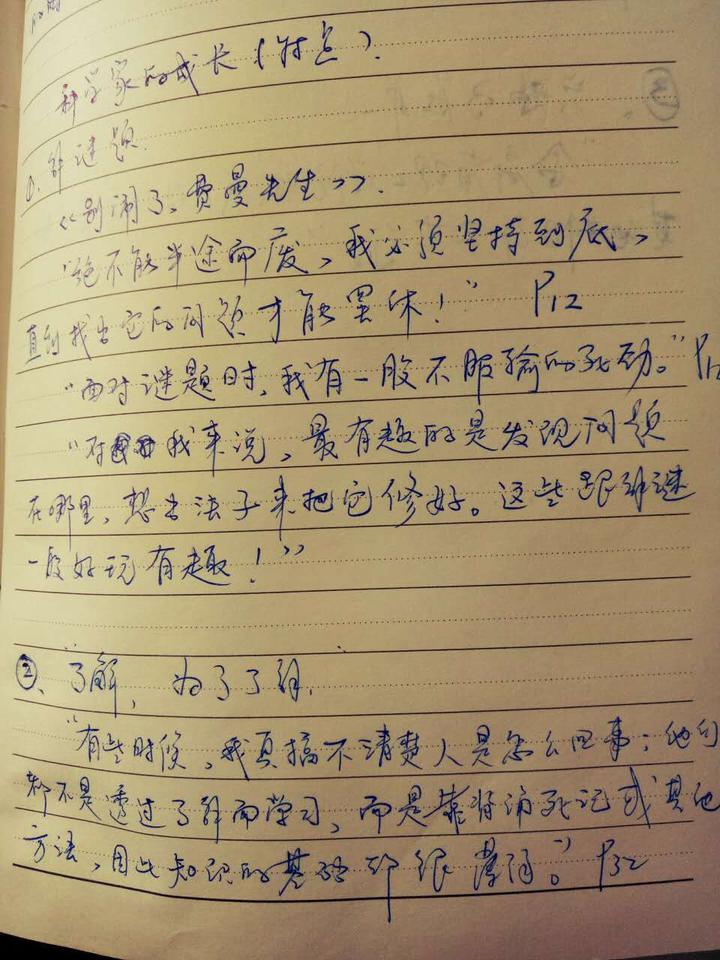 科学家的成长(特点).
①、解谜题.
《别闹了、费曼先生》.
"绝不能半途而废、我必须坚持到底、
直到找出它的问题才能罢休!" P12
"面对谜题时、我有一股不服输的死劲。" P12
"对我来说、最有趣的是发现问题
在哪里、想出法子来把它修好。这些跟解谜
一般好玩有趣!"
②、了解, 为了了解.
"有些时候、我真搞不清楚人是怎么回事:他们
都不是透过了解而学习、而是靠背诵死记或其他
方法、因此知识的基础却很薄弱。" P32